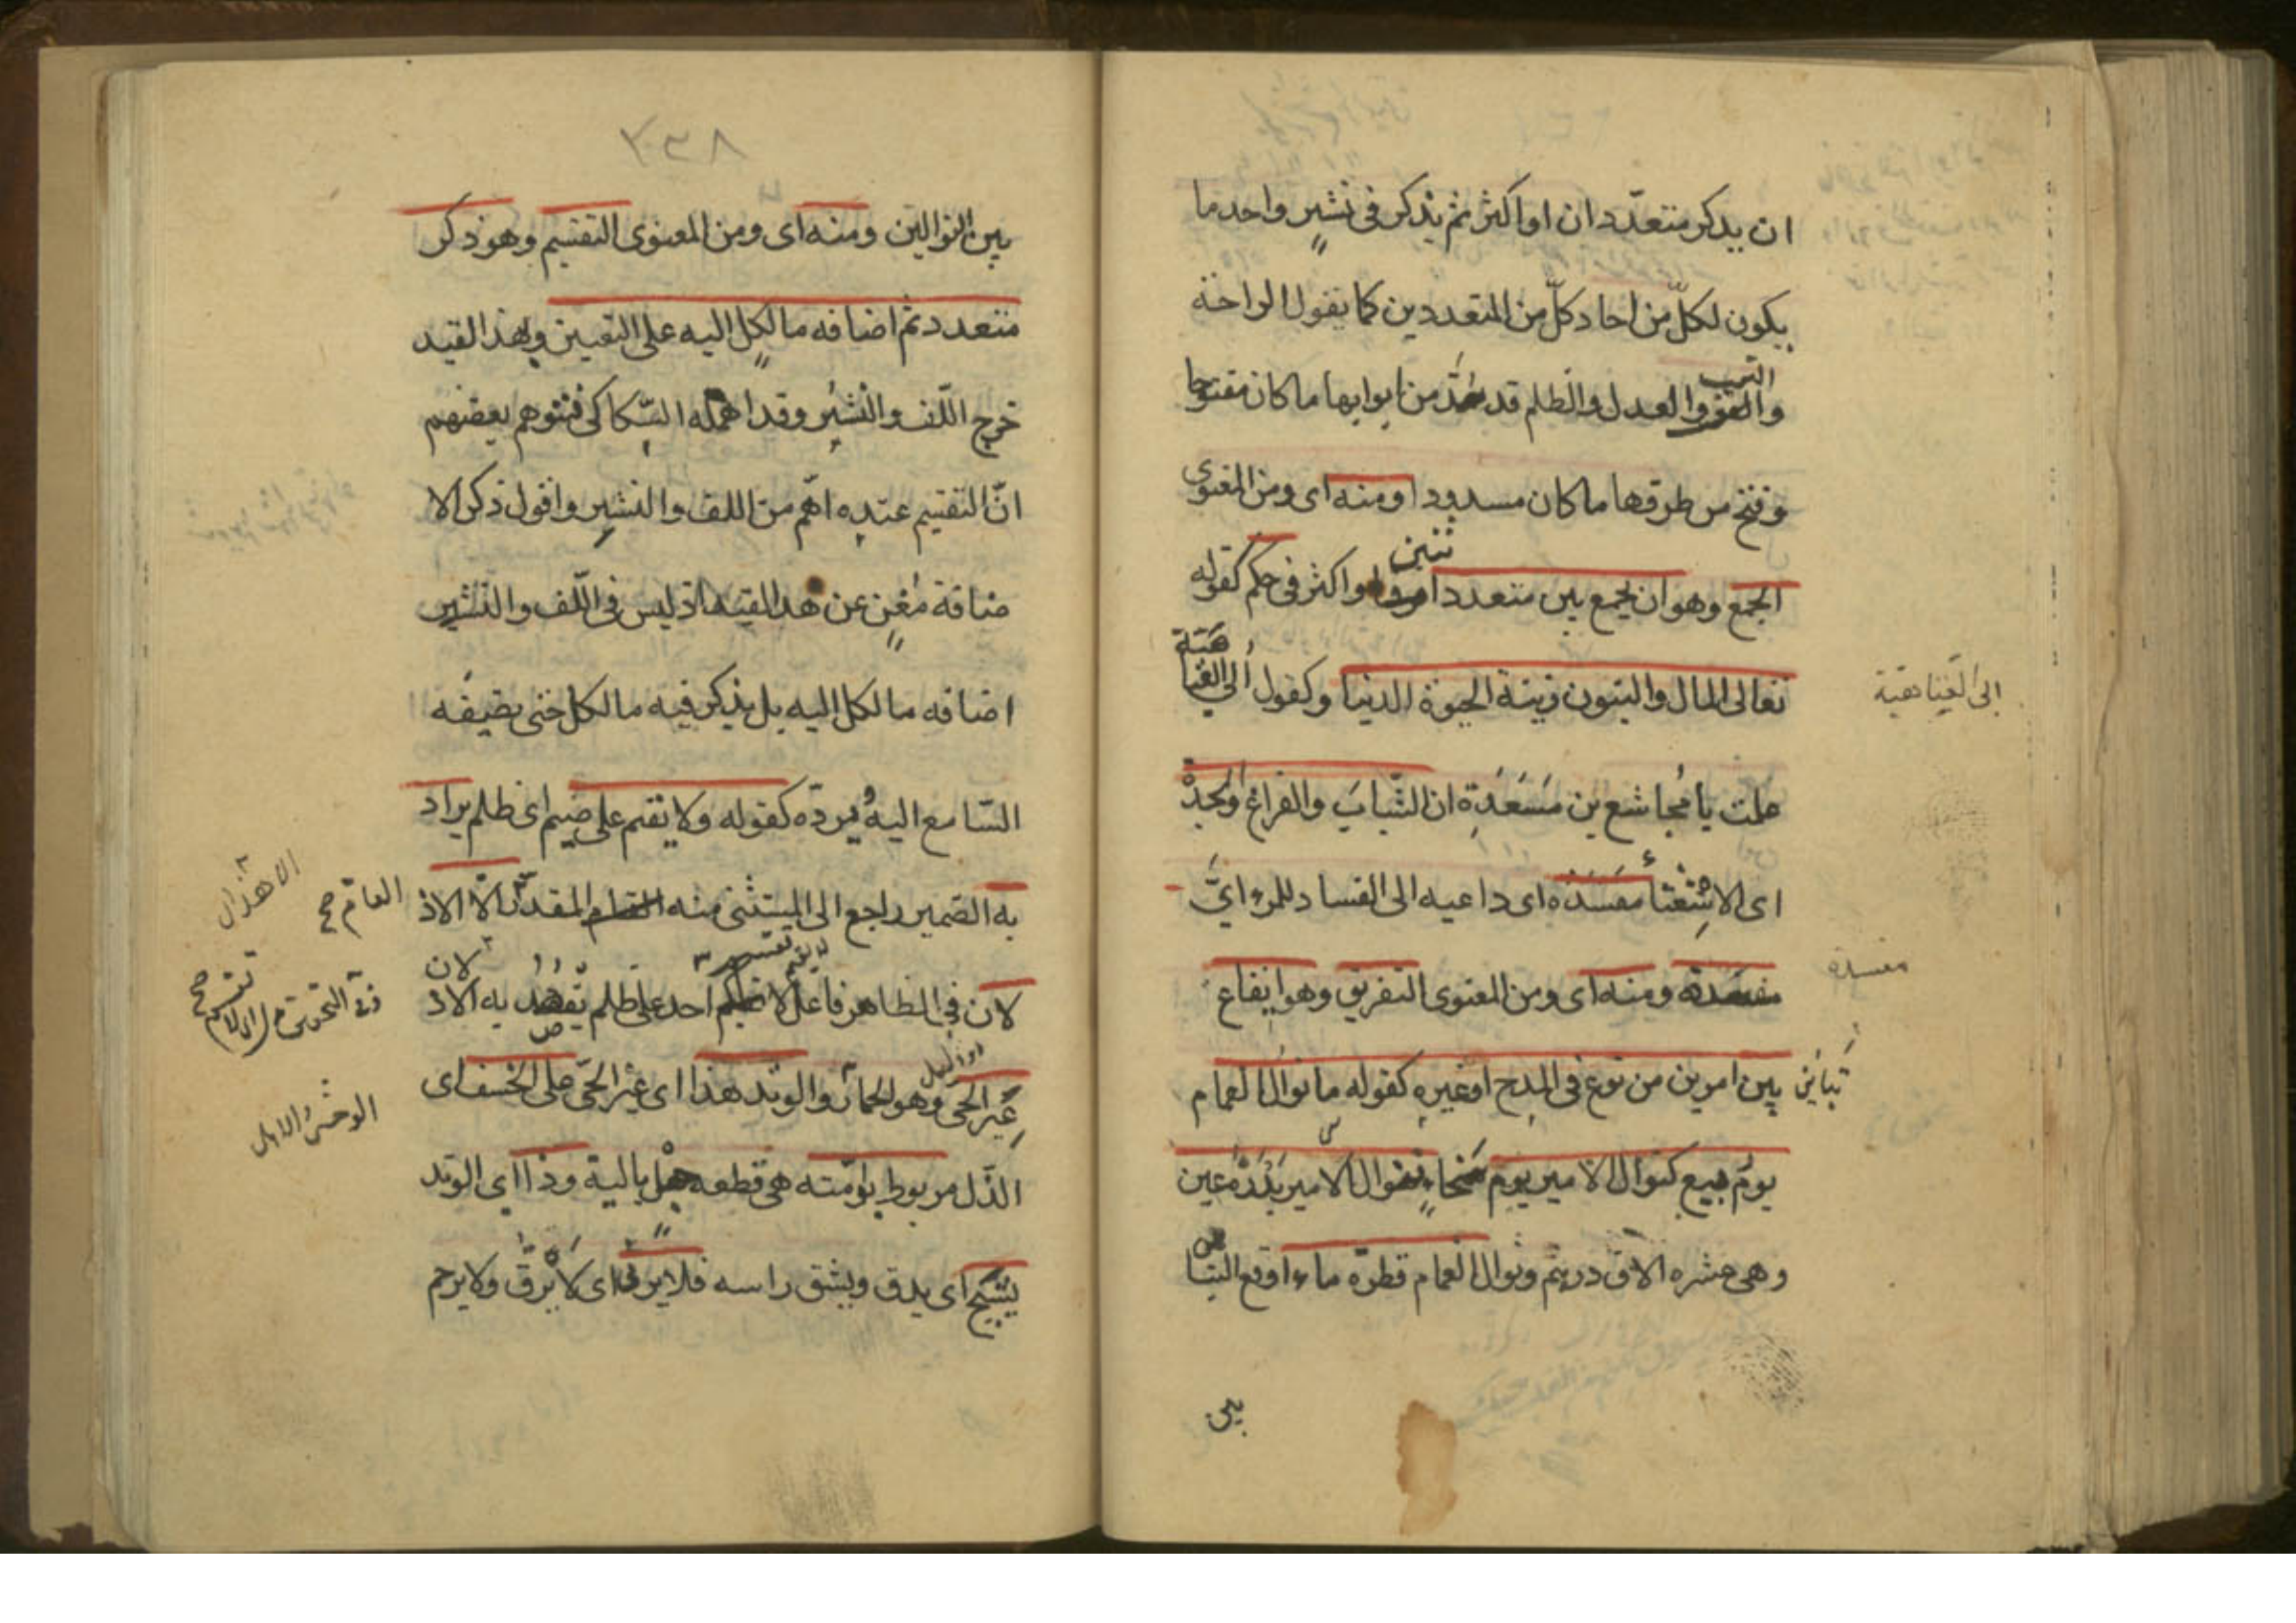 ان يذكر متعدّدان او اكثر ثم يذكر فى نشرٍ واحد ما
يكون لكلّ من احاد كلّ من المتعددين كما يقول الراحة
التعب
والعدل والظلم قد سُدَّ من ابوابها ما كان مفتوحا
وفتح من طرقها ما كان مسدودا ومنه اى ومن المعنوى
ثنين
الجمع وهو ان يجمع بين متعدد او اكثر فى حكم كقوله
تعالى المال والبنون زينة الحيوة الدنيا وكقول ابى العتا
هية
ابى العتاهية
علمت يا مُجاشع بن مَسعَدَة ان الشّبابَ والفراغ والجِدة
اى الاستغناء مفسَدة اى داعيه الى الفساد للمرء اىّ
مفسدة ومنه اى ومن المعنوى التفريق وهو ايقاع
مفسدة
تباين بين امرين من نوع فى المدح او غيره كقوله ما نوال الغمام
يومَ ربيع كنوال الامير يوم سَخاءٍ فنوال الامير بَدْرَة عين
وهى عشره الاف درهم ونوال الغمام قطرة ماء اوقع التبا
بين
٢٣٨
بين النوالين ومنه اى ومن المعنوى التقسيم وهو ذكر
متعدد ثم اضافه ما لكل اليه على التعيين وبهذا القيد
خرج اللّف والنشر وقد اهمله السّكاكى فتوهم بعضهم
انّ التقسيم عنده اهم من اللف والنشر واقول ذكر الا
ضافة مُغنٍ عن هذا القيد اذ ليس فى اللّف والنشر
اضافه ما لكل اليه بل يذكر فيه ما لكل حتى يضيفه
السّامع اليه ويردّه كقوله ولا يقيم على ضيم اى ظلم يراد
به الضمير راجع الى المستثنى منه المقدّر الّا الاذ
العامّ صح
لان فى الظاهر فاعل لا يقيم احد على ظلم يقصد به الاذ
لان
عَير الحى وهو الحمار والوتد هذا اى عَير الحىّ على الخسف اى
الوحشىّ
الذّل مربوط برمّته هى قطعه حبل بالية وذا اى الوتد
يُشَجّ اى يدق ويشق راسه فلا يرثى اى لا يرقّ ولا يرحم